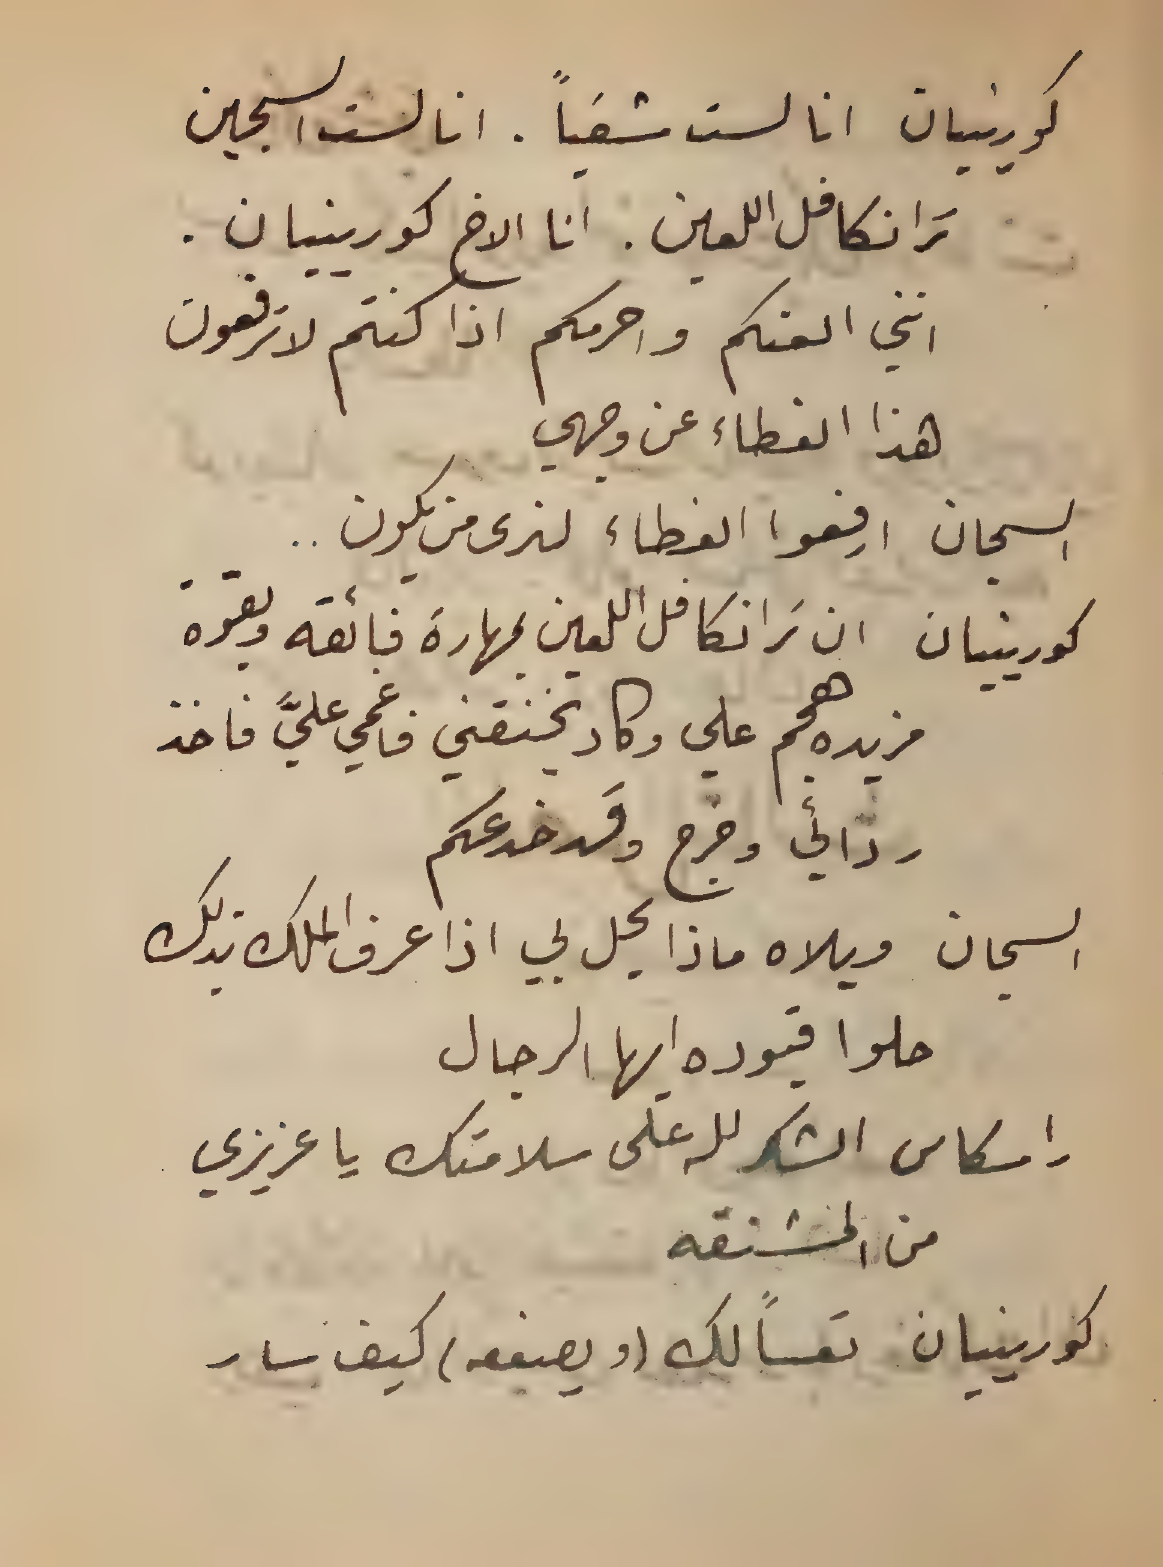 كورينيان انا لست شقياً . انا لست السجين
ترانكافل اللعين . انا الاخ كورينيان .
انني العنكم واحرمكم اذا كنتم لا ترفعون
هذا الغطاء عن وجهي
السجان ارفعوا الغطاء لنرى من يكون ..
كورينيان ان ترانكافل اللعين بمهارة فائقه وبقوة
مزيده هجم علي وكاد يخنقني فاغمي عليَّ فاخذ
ردائي وخرج وقد خدعكم
السجان ويلاه ماذا يحل بي اذا عرف الملك بذلك
حلوا قيوده ايها الرجال
رامسكاس الشكر لله على سلامتك يا عزيزي
من المشنقه
كورينيان تعساً لك (ويصفعه) كيف سار